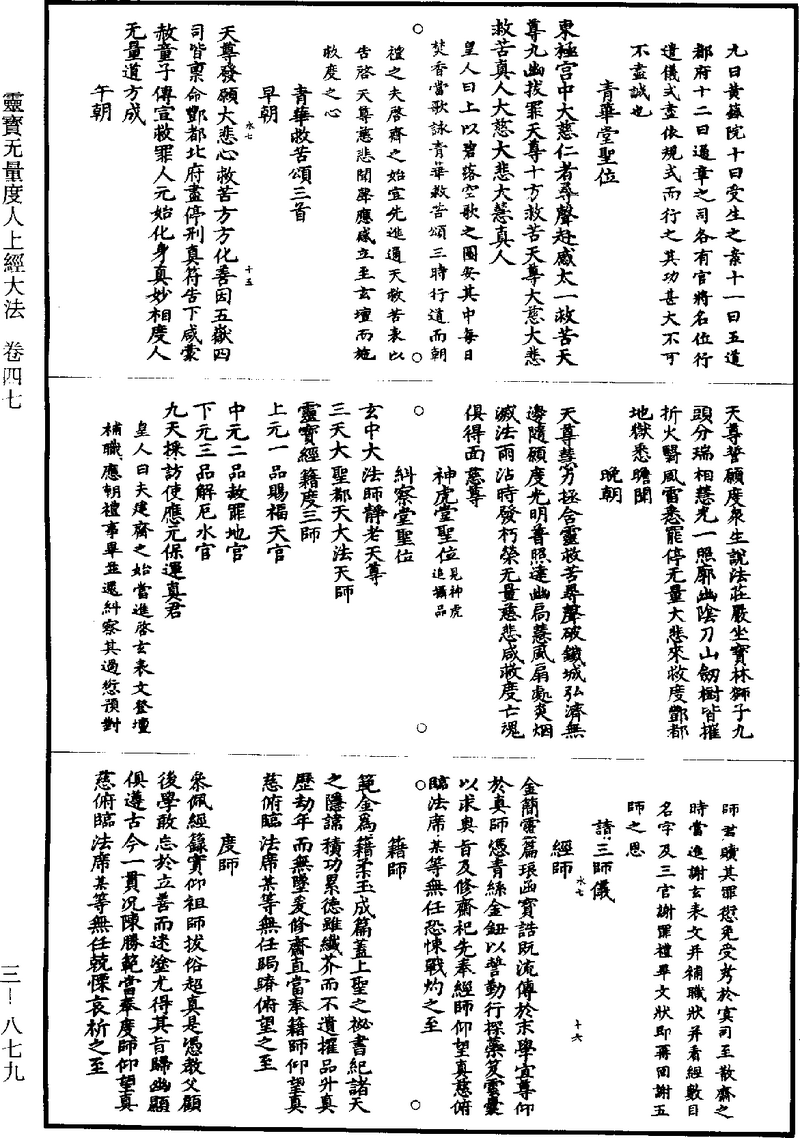 靈寶无量度人上經大法　卷四七
三－八七九
九曰黃籙院十曰受生之案十一曰五道
都府十二曰通章之司各有官將名位行
遣儀式盡依規式而行之其功甚大不可
不盡誠也
青華堂聖位
東極宫中大慈仁者尋聲赴感太一救苦天
尊九幽拔罪天尊十方救苦天尊大慈大悲
救苦真人大慈大悲大慧真人
皇人曰上以碧落空歌之圖安其中每日
焚香當歌詠青華救苦頌三時行道而朝
禮之夫啓齋之始宜先進通天救苦表以
告啓天尊慈悲聞聲應感立至玄壇而施
救度之心
青華救苦頌三首
早朝
水七
十五
天尊發願大悲心救苦方方化善因五嶽四
司皆稟命酆都北府盡停刑真符告下咸蒙
赦童子傳宣救罪人元始化身真妙相度人
无量道方成
午朝
天尊誓願度衆生說法莊嚴坐寶林獅子九
頭分瑞相慧光一照廓幽陰刀山劒樹皆摧
折火翳風雷悉罷停无量大悲來救度酆都
地獄悉聴聞
晚朝
天尊慧力拯含靈救苦尋聲破鐵城弘濟無
邊隨願度光明普照達幽扃慧風扇處炎烟
滅法雨沾時發朽榮无量慈悲咸救度亡魂
俱得面慈尊
神虎堂聖位見神虎追攝品
糾察堂聖位
玄中大法師靜老天尊
三天大聖都天大法天師
靈寶經籍度三師
上元一品賜福天官
中元二品赦罪地官
下元三品解厄水官
九天採訪使應元保運真君
皇人曰夫建齋之始當進啓玄表文登壇
補職應朝禮事畢並還糾察其過愆預對
師君贖其罪愆免受考於㝠司至散齋之
時當進謝玄表文并補職狀并看經數目
名字及三官謝罪禮畢文狀即再回謝五
師之恩
請三師儀
經師
水七
十六
金簡靈篇琅函寶誥既流傳於末學宜尊仰
於真師憑青絲金鈕以誓勤行探蘂笈靈囊
以求奥旨及修齋祀先奉經師仰望真慈俯
臨法席某等無任恐悚戰灼之至
籍師
範金爲籍柔玉成篇蓋上聖之祕書紀諸天
之隱諱積功累德雖纖芥而不遺擢品升真
歷劫年而無墜爰修齋直當奉籍師仰望真
慈俯臨法席某等無任跼蹐俯望之至
度師
泉佩經籙實仰祖師拔俗超真是憑教父顧
後學敢忘於立善而迷塗尤得其旨歸幽顯
俱遵古今一貫况陳勝範當奉度師仰望真
慈俯臨法席某等無任兢慄哀祈之至